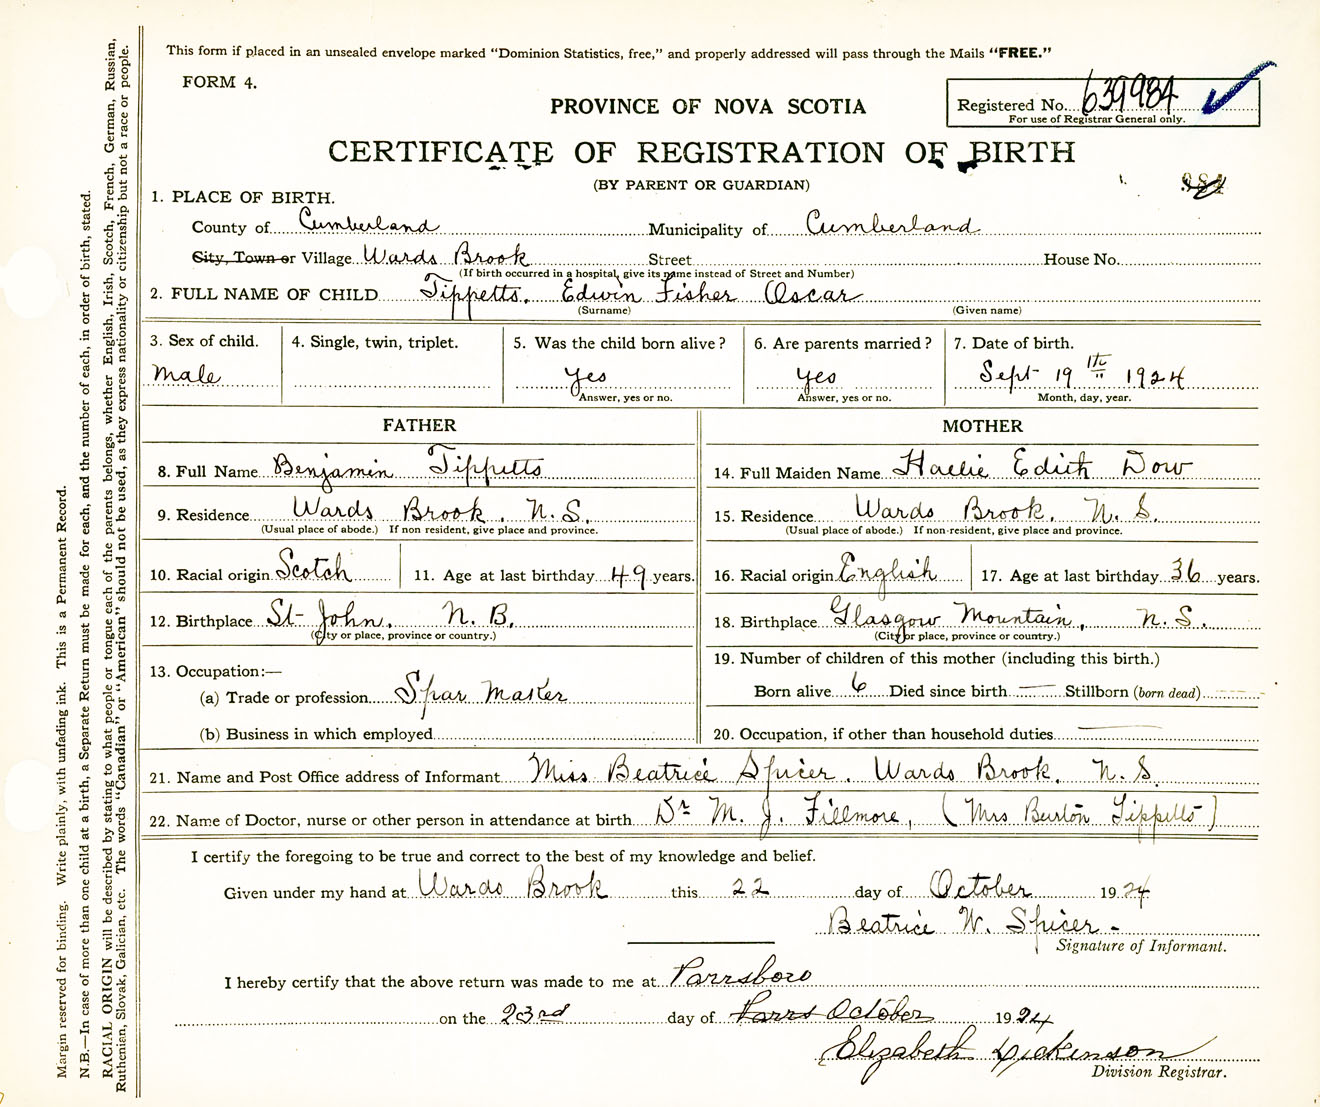 This form if placed in an unsealed envelope marked “Dominion Statistics, free,” and properly addressed will pass through the Mails “FREE.”
FORM 4.
Registered No. 639984
For use of Registrar General only.
PROVINCE OF NOVA SCOTIA
CERTIFICATE OF REGISTRATION OF BIRTH
(BY PARENT OR GUARDIAN)
1. PLACE OF BIRTH.
County of Cumberland Municipality of Cumberland
City, Town or Village Wards Brook Street House No.
(If birth occurred in a hospital, give its name instead of Street and Number)
2. FULL NAME OF CHILD Tippetts, Edwin Fisher Oscar
(Surname) (Given name)
3. Sex of child. 4. Single, twin, triplet. 5. Was the child born alive? 6. Are parents married? 7. Date of birth.
Male yes yes Sept 19th 1924
Answer, yes or no. Answer, yes or no. Month, day, year.
FATHER MOTHER
8. Full Name Benjamin Tippetts 14. Full Maiden Name Hallie Edith Dow
9. Residence Wards Brook, N.S. 15. Residence Wards Brook, N.S.
(Usual place of abode.) If non resident, give place and province. (Usual place of abode.) If non-resident, give place and province.
10. Racial origin Scotch 11. Age at last birthday 49 years. 16. Racial origin English 17. Age at last birthday 36 years.
12. Birthplace St John, N.B. 18. Birthplace Glasgow Mountain, N.S.
(City or place, province or country.) (City or place, province or country.)
13. Occupation:— 19. Number of children of this mother (including this birth.)
(a) Trade or profession Spar Maker Born alive 6 Died since birth — Stillborn (born dead)
(b) Business in which employed 20. Occupation, if other than household duties —
21. Name and Post Office address of Informant Miss Beatrice Spicer, Wards Brook, N.S.
22. Name of Doctor, nurse or other person in attendance at birth Dr M. J. Fillmore, (Mrs Burton Tippetts)
I certify the foregoing to be true and correct to the best of my knowledge and belief.
Given under my hand at Wards Brook this 22 day of October 1924
Beatrice W. Spicer -
Signature of Informant.
I hereby certify that the above return was made to me at Parrsboro
on the 23rd day of Parrs October 1924
Elizabeth Dickinson
Division Registrar.
Margin reserved for binding. Write plainly, with unfading ink. This is a Permanent Record.
N.B.—In case of more than one child at a birth, a Separate Return must be made for each, and the number of each, in order of birth, stated.
RACIAL ORIGIN will be described by stating to what people or tongue each of the parents belongs, whether English, Irish, Scotch, French, German, Russian,
Ruthenian, Slovak, Galician, etc. The words “Canadian” or “American” should not be used, as they express nationality or citizenship but not a race or people.